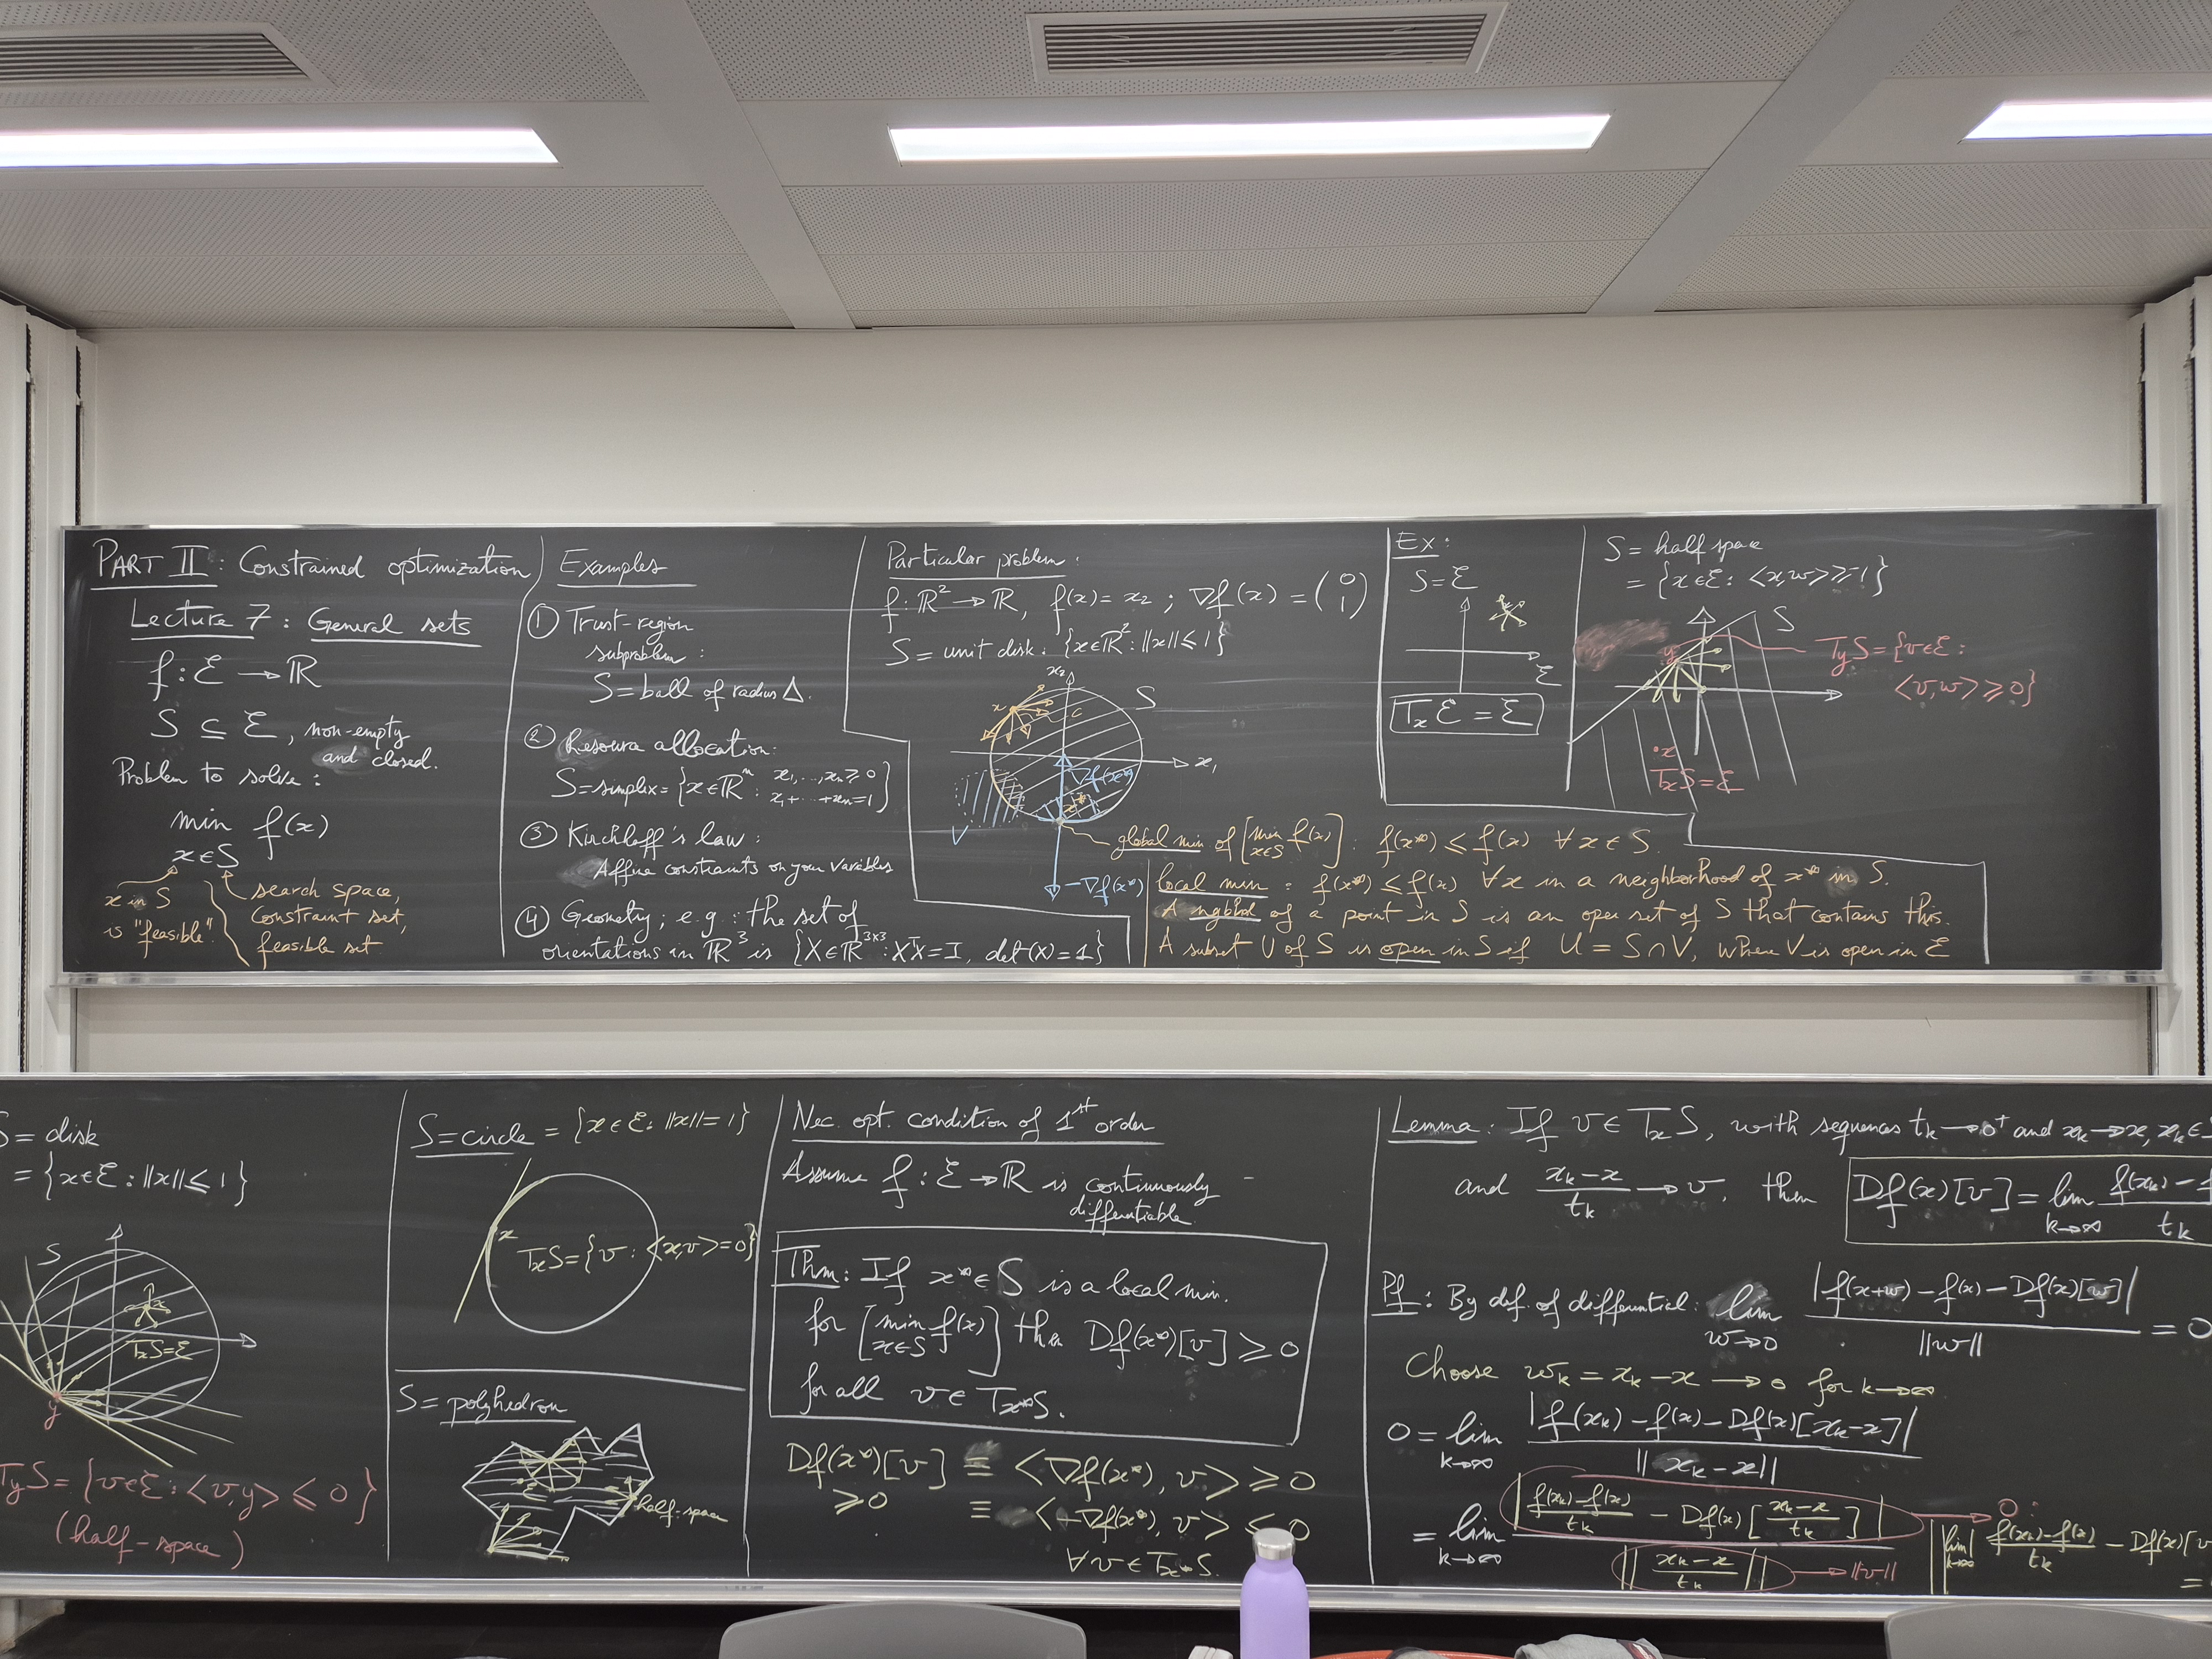 PART II : Constrained optimization
Lecture 7 : General sets
f : ℰ → ℝ
S ⊆ ℰ, non-empty
and closed.
Problem to solve :
min f(x)
x ∈ S
x in S
is "feasible"
search space,
constraint set,
feasible set
Examples
① Trust-region
subproblem :
S = ball of radius Δ.
② Resource allocation:
S = simplex = {x ∈ ℝⁿ : x₁, ..., xₙ ≥ 0
x₁ + ... + xₙ = 1}
③ Kirchhoff's law :
Affine constraints on your variables
④ Geometry; e.g.: the set of
orientations in ℝ³ is {X ∈ ℝ³ˣ³ : XᵀX = I, det(X) = 1}
Particular problem :
f : ℝ² → ℝ, f(x) = x₂ ; ∇f(x) = (0
1)
S = unit disk : {x ∈ ℝ² : ||x|| ≤ 1}
x₂
S
x
C
x₁
∇f(x*)
x*
V
-∇f(x*)
global min of [min f(x)
x∈S] : f(x*) ≤ f(x) ∀x ∈ S.
local min : f(x*) ≤ f(x) ∀x in a neighborhood of x* in S.
A ngbhd of a point in S is an open set of S that contains this.
A subset U of S is open in S if U = S ∩ V, where V is open in ℰ
Ex :
S = ℰ
ℰ
Tₓℰ = ℰ
S = half space
= {x ∈ ℰ : <x,w> ≥ -1}
S
y
T_yS = {v ∈ ℰ :
<v,w> ≥ 0}
x
TₓS = ℰ
S = disk
= {x ∈ ℰ : ||x|| ≤ 1}
S
x
TₓS = ℰ
y
T_yS = {v ∈ ℰ : <v,y> ≤ 0}
(half-space)
S = circle = {x ∈ ℰ : ||x|| = 1}
x
TₓS = {v : <x,v> = 0}
S = polyhedron
half-space
Nec. opt. condition of 1st order
Assume f : ℰ → ℝ is continuously
differentiable
Thm : If x* ∈ S is a local min.
for [min f(x)
x∈S] then Df(x*)[v] ≥ 0
for all v ∈ Tₓ*S.
Df(x*)[v] ≡ <∇f(x*), v> ≥ 0
≥ 0 ≡ <-∇f(x*), v> ≤ 0
∀v ∈ Tₓ*S.
Lemma : If v ∈ TₓS, with sequences tₖ → 0⁺ and xₖ → x, xₖ ∈
and (xₖ - x)/tₖ → v, then Df(x)[v] = lim k→∞ f(xₖ) - f / tₖ
Pf : By def. of differential: lim w→0 |f(x+w) - f(x) - Df(x)[w]| / ||w|| = 0
Choose wₖ = xₖ - x → 0 for k→∞
0 = lim k→∞ |f(xₖ) - f(x) - Df(x)[xₖ-x]| / ||xₖ - x||
= lim k→∞ |(f(xₖ)-f(x))/tₖ - Df(x)[(xₖ-x)/tₖ]| / ||(xₖ-x)/tₖ||
→ 0 :
→ ||v||
|lim k→∞ (f(xₖ)-f(x))/tₖ - Df(x)[v
=